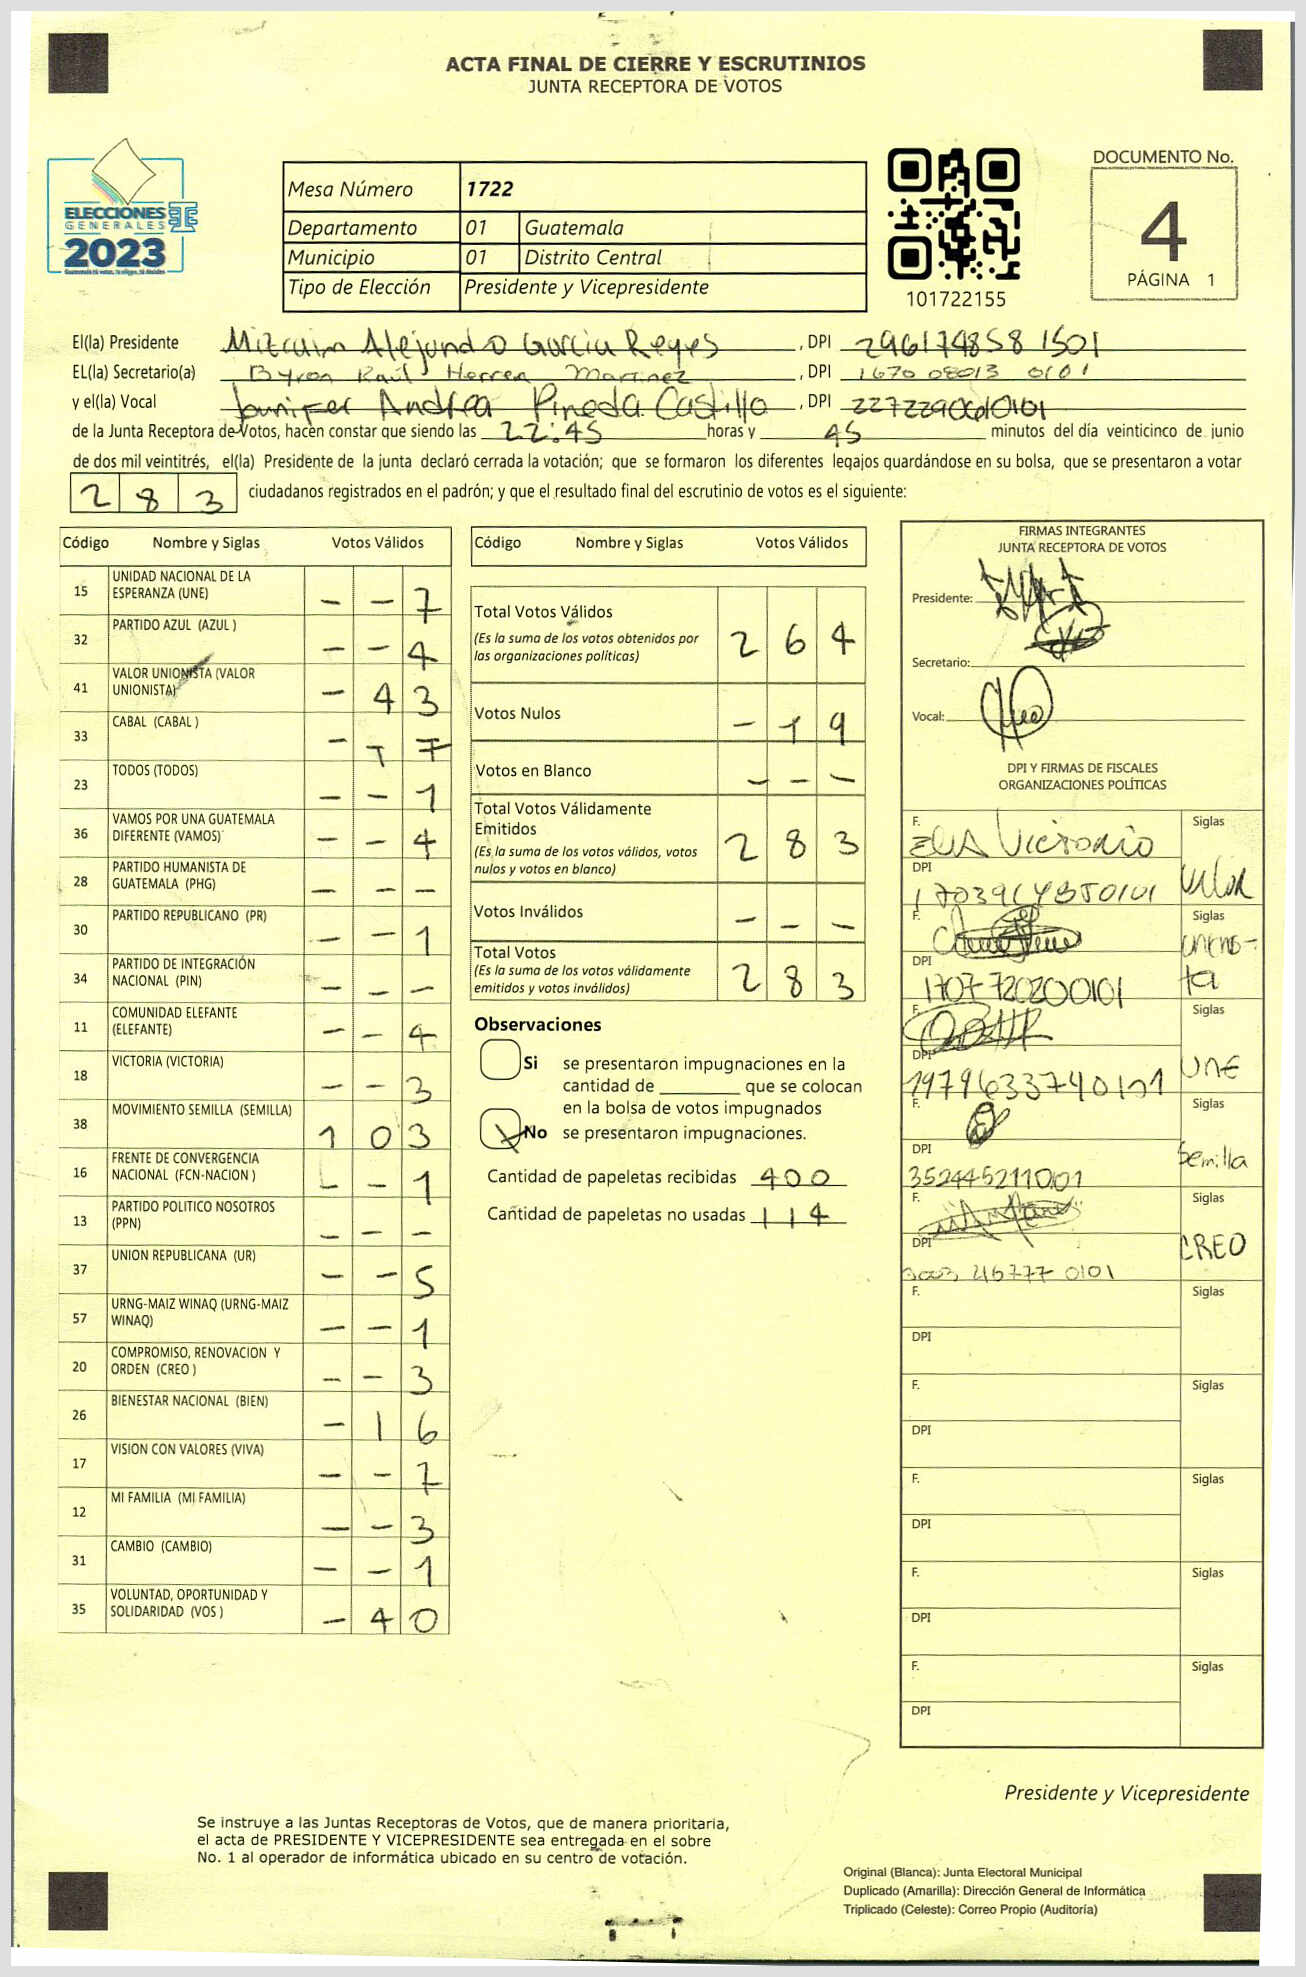 ACTA FINAL DE CIERRE Y ESCRUTINIOS
JUNTA RECEPTORA DE VOTOS
ELECCIONES
GENERALES
2023
Mesa Número 1722
Departamento 01 Guatemala
Municipio 01 Distrito Central
Tipo de Elección Presidente y Vicepresidente
101722155
DOCUMENTO No.
4
PÁGINA 1
El(la) Presidente Alejandro Garcia Reyes, DPI 296174858 1501
EL(la) Secretario(a) Byron Raúl Herrera Martinez, DPI 1670 08013 0101
y el(la) Vocal Andrea Pineda Castillo, DPI
de la Junta Receptora de Votos, hacen constar que siendo las 22:45 horas y 45 minutos del día veinticinco de junio
de dos mil veintitrés, el(la) Presidente de la junta declaró cerrada la votación; que se formaron los diferentes legajos guardándose en su bolsa, que se presentaron a votar
283 ciudadanos registrados en el padrón; y que el resultado final del escrutinio de votos es el siguiente:
Código Nombre y Siglas Votos Válidos
15 UNIDAD NACIONAL DE LA ESPERANZA (UNE) - - 7
32 PARTIDO AZUL (AZUL ) - - 4
41 VALOR UNIONISTA (VALOR UNIONISTA) - 4 3
33 CABAL (CABAL ) - 1 7
23 TODOS (TODOS) - - 1
36 VAMOS POR UNA GUATEMALA DIFERENTE (VAMOS) - - 4
28 PARTIDO HUMANISTA DE GUATEMALA (PHG) - - -
30 PARTIDO REPUBLICANO (PR) - - 1
34 PARTIDO DE INTEGRACIÓN NACIONAL (PIN) - - -
11 COMUNIDAD ELEFANTE (ELEFANTE) - - 4
18 VICTORIA (VICTORIA) - - 3
38 MOVIMIENTO SEMILLA (SEMILLA) 1 0 3
16 FRENTE DE CONVERGENCIA NACIONAL (FCN-NACION ) - - 1
13 PARTIDO POLITICO NOSOTROS (PPN) - - -
37 UNION REPUBLICANA (UR) - - 5
57 URNG-MAIZ WINAQ (URNG-MAIZ WINAQ) - - 1
20 COMPROMISO, RENOVACION Y ORDEN (CREO ) - - 3
26 BIENESTAR NACIONAL (BIEN) - 1 6
17 VISION CON VALORES (VIVA) - - 7
12 MI FAMILIA (MI FAMILIA) - - 3
31 CAMBIO (CAMBIO) - - 1
35 VOLUNTAD, OPORTUNIDAD Y SOLIDARIDAD (VOS ) - 4 0
Código Nombre y Siglas Votos Válidos
Total Votos Válidos 2 6 4
(Es la suma de los votos obtenidos por
las organizaciones políticas)
Votos Nulos - 1 9
Votos en Blanco - - -
Total Votos Válidamente
Emitidos 2 8 3
(Es la suma de los votos válidos, votos
nulos y votos en blanco)
Votos Inválidos - - -
Total Votos 2 8 3
(Es la suma de los votos válidamente
emitidos y votos inválidos)
Observaciones
Si se presentaron impugnaciones en la
cantidad de ________ que se colocan
en la bolsa de votos impugnados
X No se presentaron impugnaciones.
Cantidad de papeletas recibidas 400
Cantidad de papeletas no usadas 114
FIRMAS INTEGRANTES
JUNTA RECEPTORA DE VOTOS
Presidente:
Secretario:
Vocal:
DPI Y FIRMAS DE FISCALES
ORGANIZACIONES POLÍTICAS
F. Victorio Siglas
DPI Valor
F. Siglas
DPI 1707 720200101
F. Siglas
DPI UNE
F. Siglas
DPI 352445211001 Semilla
F. Siglas
DPI CREO
F. Siglas
DPI
F. Siglas
DPI
F. Siglas
DPI
F. Siglas
DPI
F. Siglas
DPI
Presidente y Vicepresidente
Se instruye a las Juntas Receptoras de Votos, que de manera prioritaria,
el acta de PRESIDENTE Y VICEPRESIDENTE sea entregada en el sobre
No. 1 al operador de informática ubicado en su centro de votación.
Original (Blanca): Junta Electoral Municipal
Duplicado (Amarilla): Dirección General de Informática
Triplicado (Celeste): Correo Propio (Auditoría)